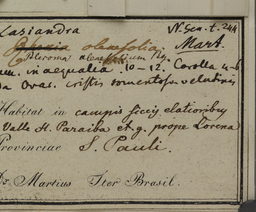 Lasiandra N. Gen. t. 244
oleaefolia Mart.
Pleroma oleaefolium Trg.
um. inaequalia. 10-12. Corolla 4-6
Ovar. cristis tomentosa velutinis
Habitat in campis siccis elatioribus
Valle H. Paraiba et g. prope Lorena
Provinciae S. Pauli.
Dr Martius Iter Brasil.